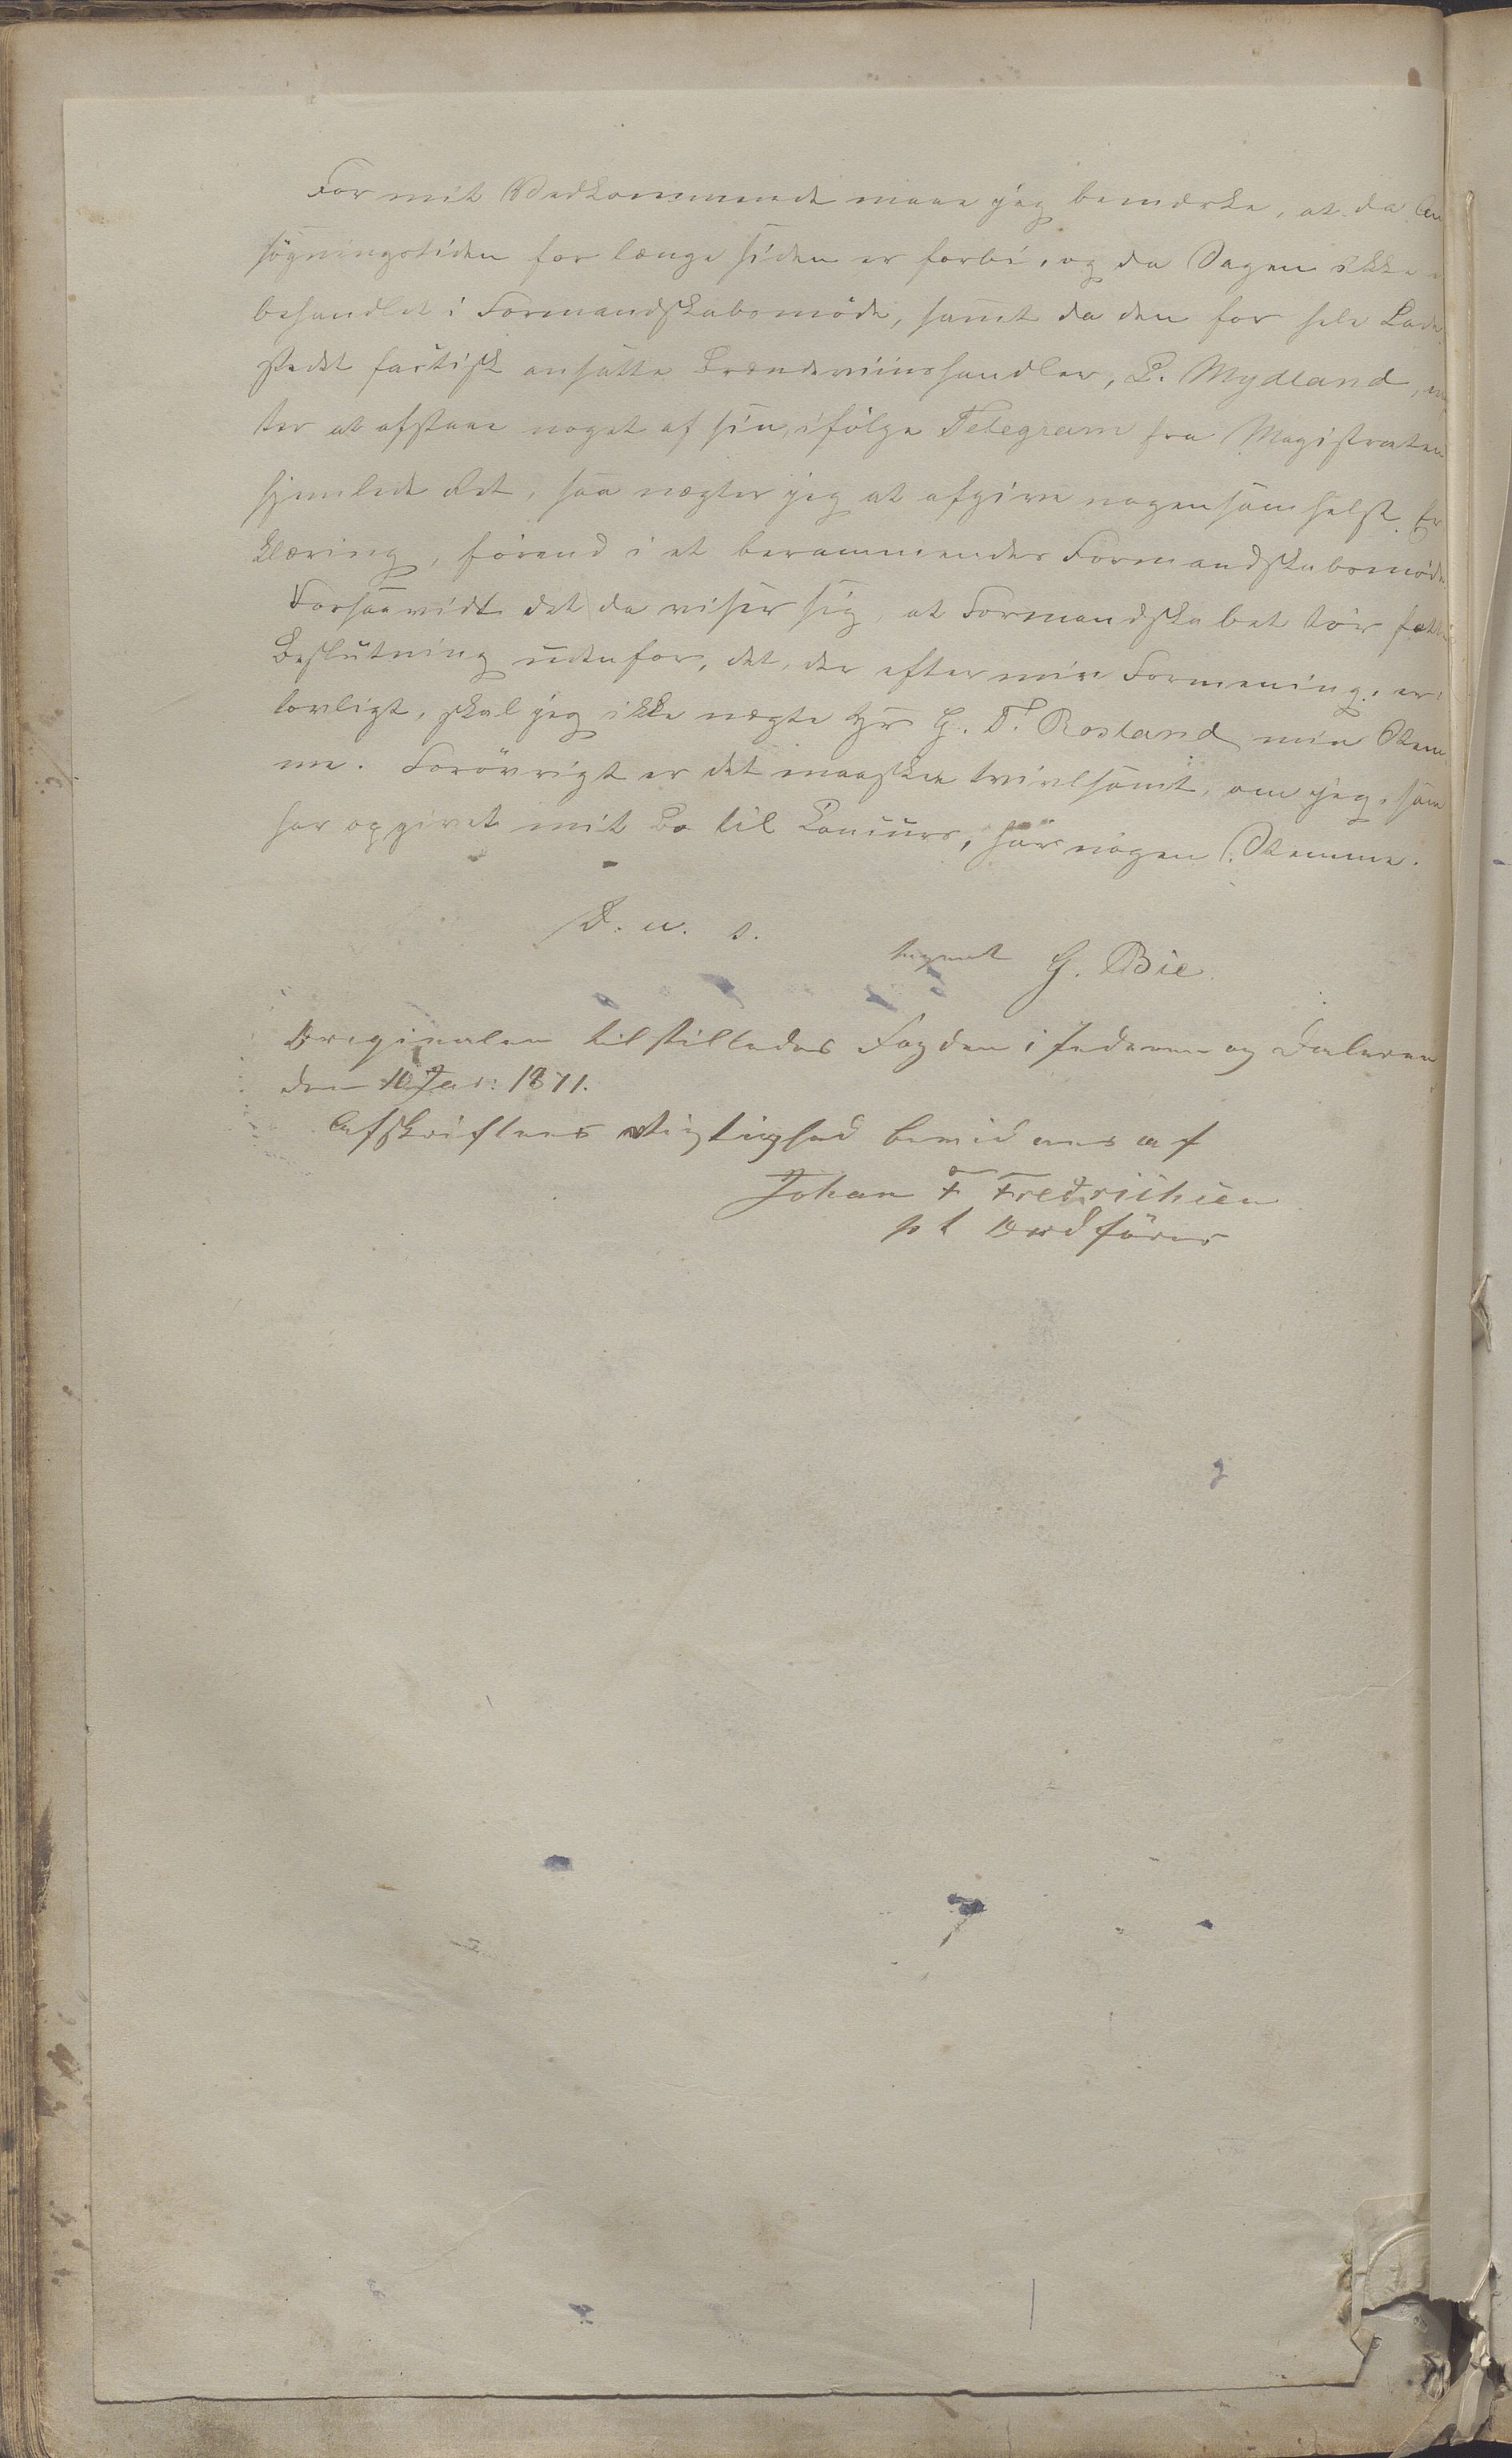 For mit Vedkommende maae jeg bemærke, at da An
søgningstiden for længe siden er forbi, og da Sagen ikke e
behandlet i Formandskabsmøde, samt da den for hele Lade
stedet factisk ansatte Brændeviinshandler, L. Mydland,
ter at afstaae noget af sin, ifølge Telegram fra Magistraten
hjemlede Ret, saa nægter jeg at afgive nogensomhelst Er
klæring, førend i et berammendes Formandskabsmøde
Forsaavidt det da viser sig, at Formandskabet tør fatte
Beslutning udenfor, det, der efter min Formening, er
lovligt, skal jeg ikke nægte Hr G. T. Rosland min Stem
me. Forøvrigt er det maaskee tvivlsomt, om jeg, som
har opgivet mit Bo til Concurs, har nogen Stemme.
D. u. s.
tegnet G. Bie
Originalen tilstilledes Fogden i Jederen og Dalerne
den 10 Jan: 1871.
Afskriftens Rigtighed bevidnes af
Johan F Fredrichsen
pt Ordfører